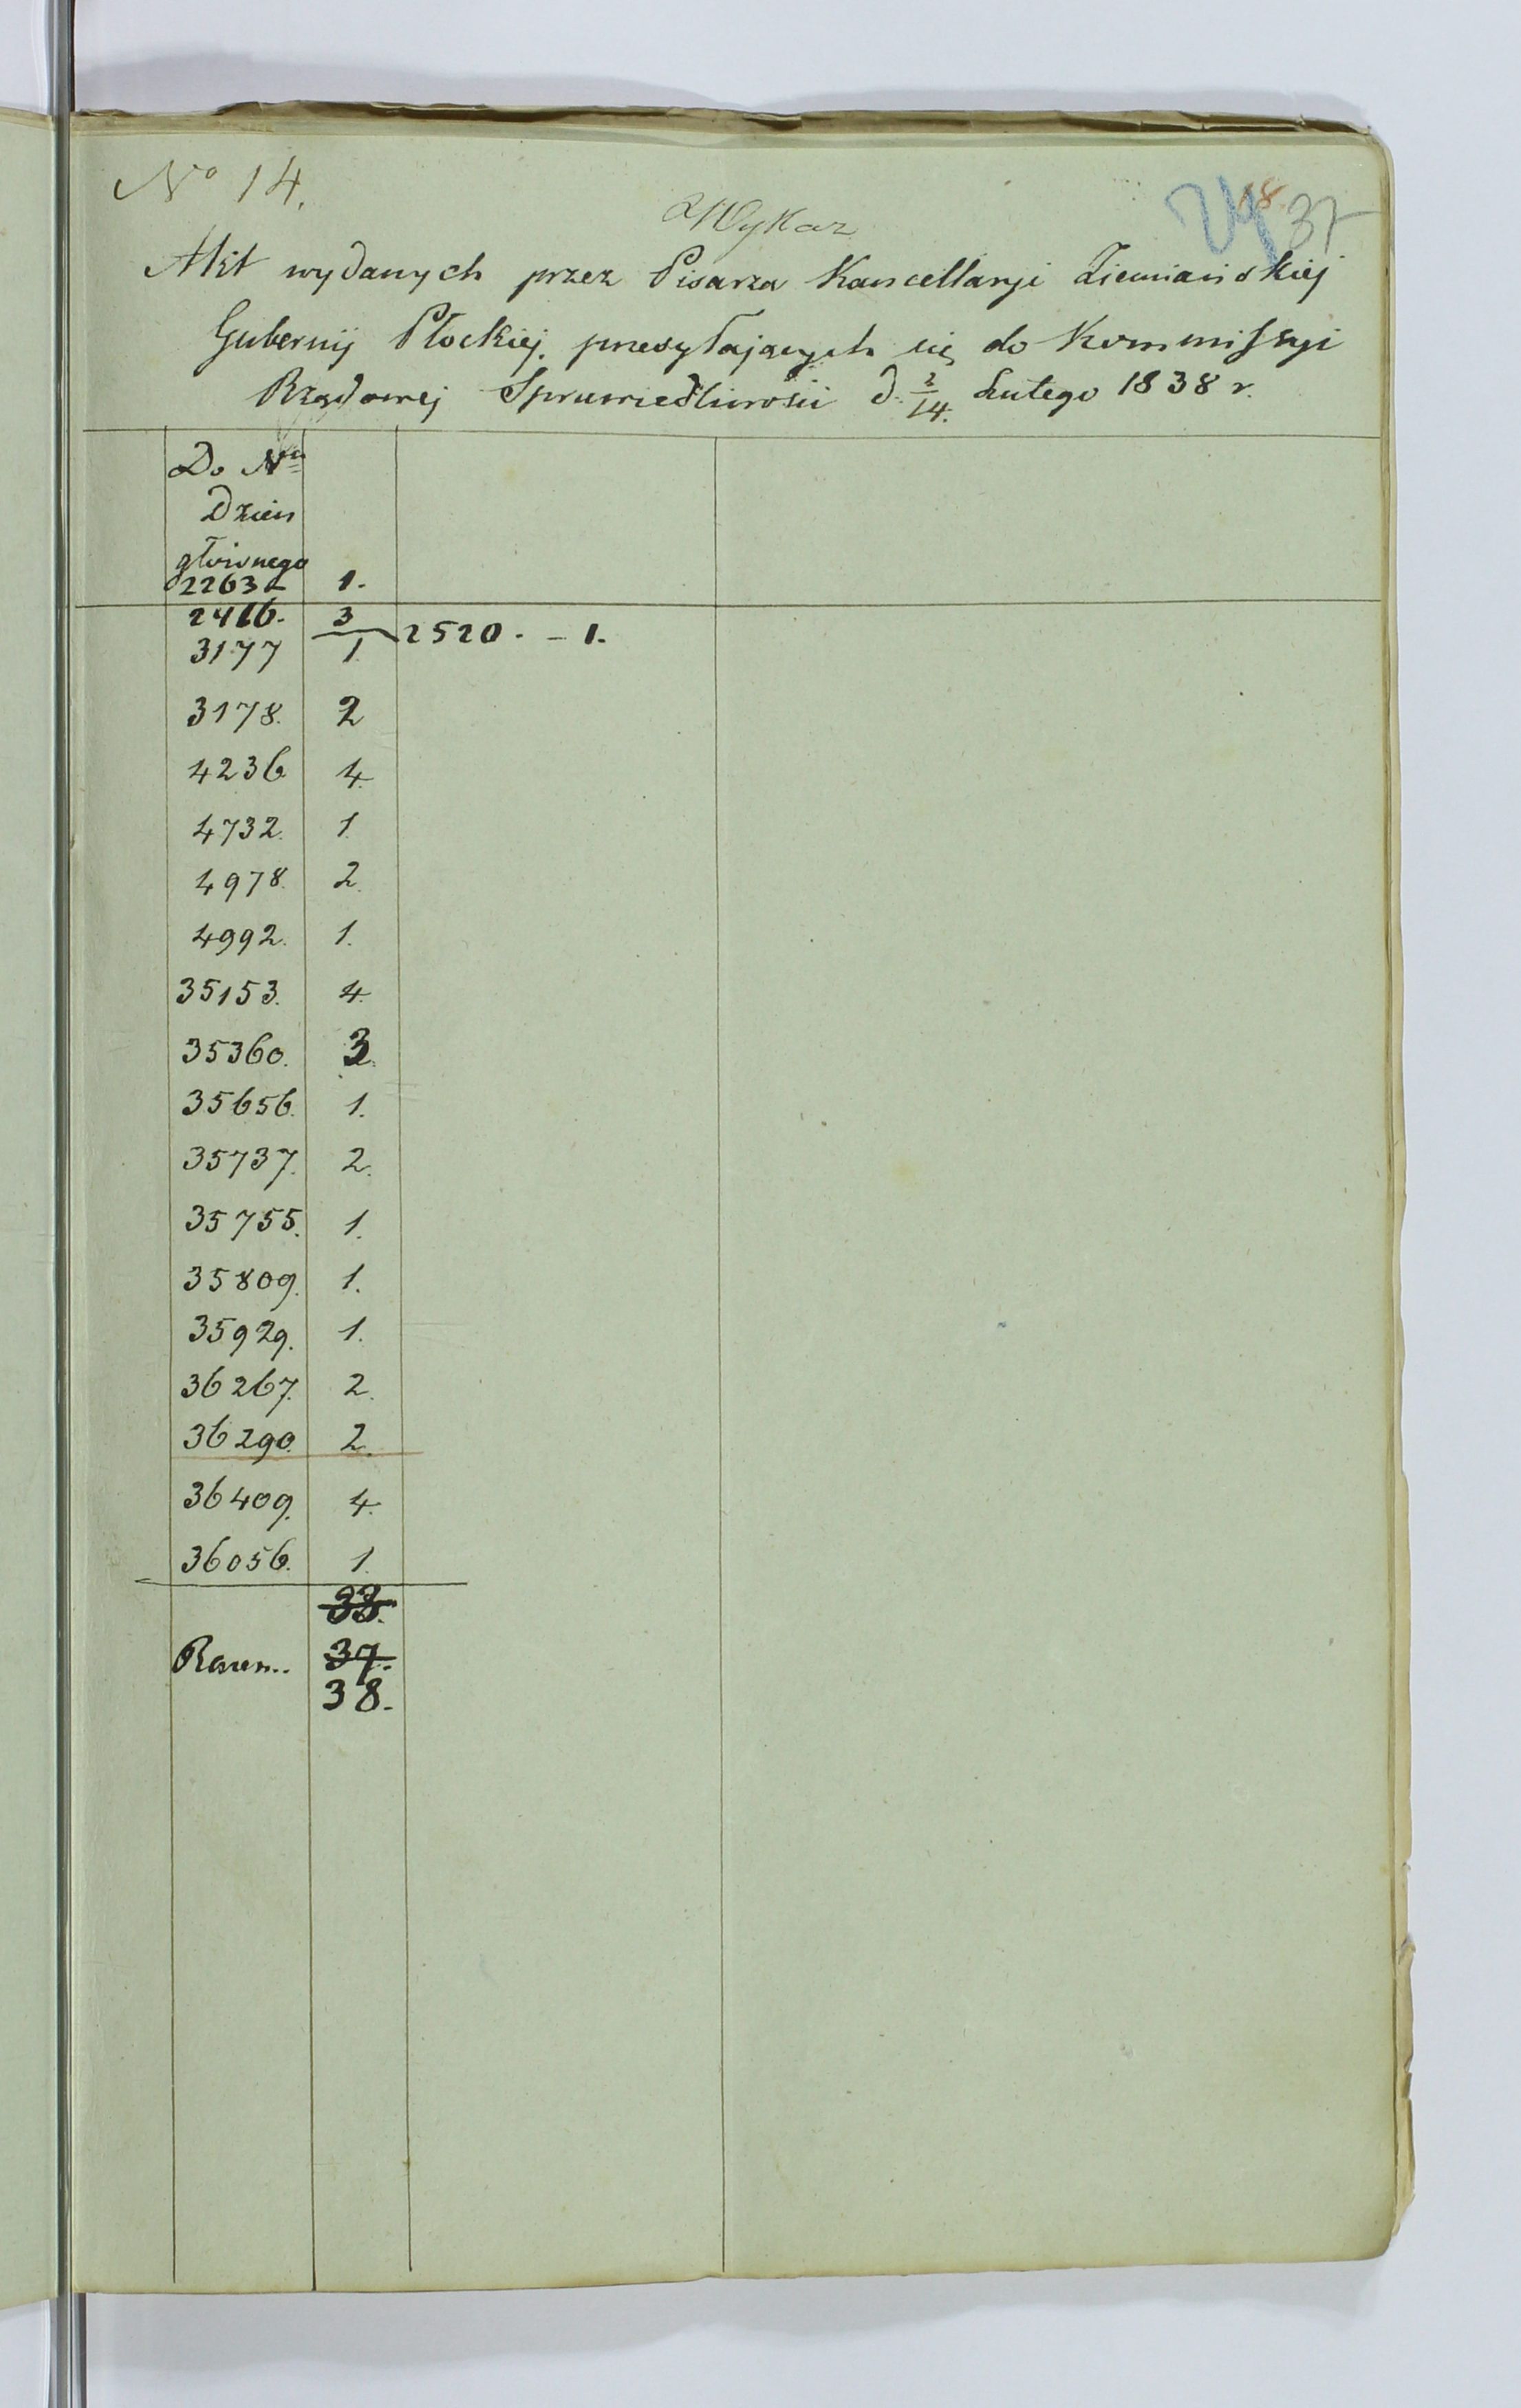 No 14.
24 18. 37
Wykaz
Akt wydanych przez Pisarza Kancellaryi Ziemiańskiej
Gubernij Płockiej. przesyłających się do Kommissyi
Rządowej Sprawiedliwości d. 2/14. Lutego 1838 r.
Do Nru
Dzien
głownego
2263 1.
2416. 3
2520. - 1.
3177 1
3178. 2
4236 4.
4732. 1.
4978. 2.
4992. 1.
35153. 4.
35360. 3.
35656. 1.
35737. 2.
35755. 1.
35809. 1.
35929. 1.
36267. 2.
36290. 2.
36409. 4.
36056. 1.
33.
Razem.. 37.
38.